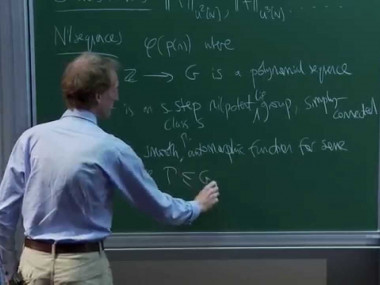 ‖ ‖_{u²(N)}, ‖·‖_{u³(N)}, ...
Nilsequences φ(p(n)) where
ℤ → G is a polynomial sequence
is an s step nilpotent Lie group, simply connected
class s
smooth, Γ-automorphic function for some
Γ ≤ G